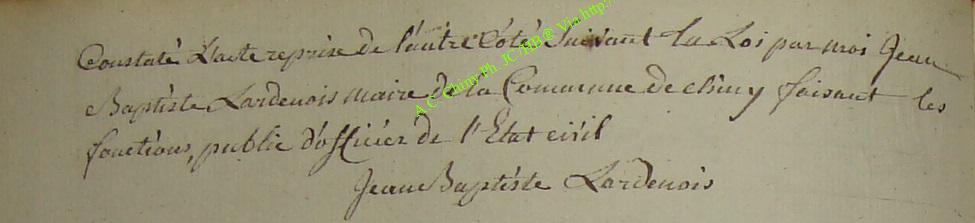 Constaté L'acte reprise de l'autre Côté Suivant la Loi par moi Jean
Baptiste Lardenois maire de la Commune de chiny faisant les
fonctions, public d'officiér de l'Etat civil
Jean Baptiste Lardenois
A C Chiny Ph JC HB@ Via http:/